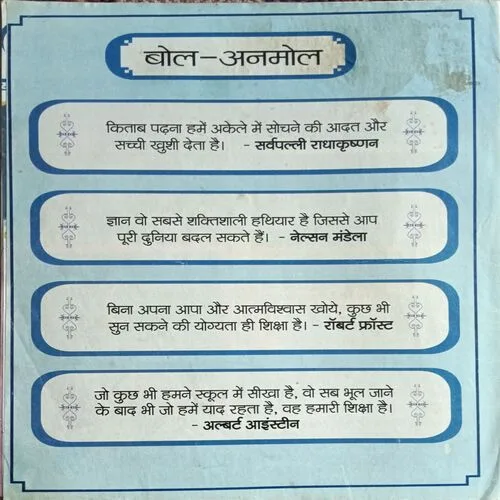 बोल-अनमोल
किताब पढ़ना हमें अकेले में सोचने की आदत और
सच्ची खुशी देता है। - सर्वपल्ली राधाकृष्णन
ज्ञान वो सबसे शक्तिशाली हथियार है जिससे आप
पूरी दुनिया बदल सकते हैं। - नेल्सन मंडेला
बिना अपना आपा और आत्मविश्वास खोये, कुछ भी
सुन सकने की योग्यता ही शिक्षा है। - रॉबर्ट फ्रॉस्ट
जो कुछ भी हमने स्कूल में सीखा है, वो सब भूल जाने
के बाद भी जो हमें याद रहता है, वह हमारी शिक्षा है।
- अल्बर्ट आइंस्टीन